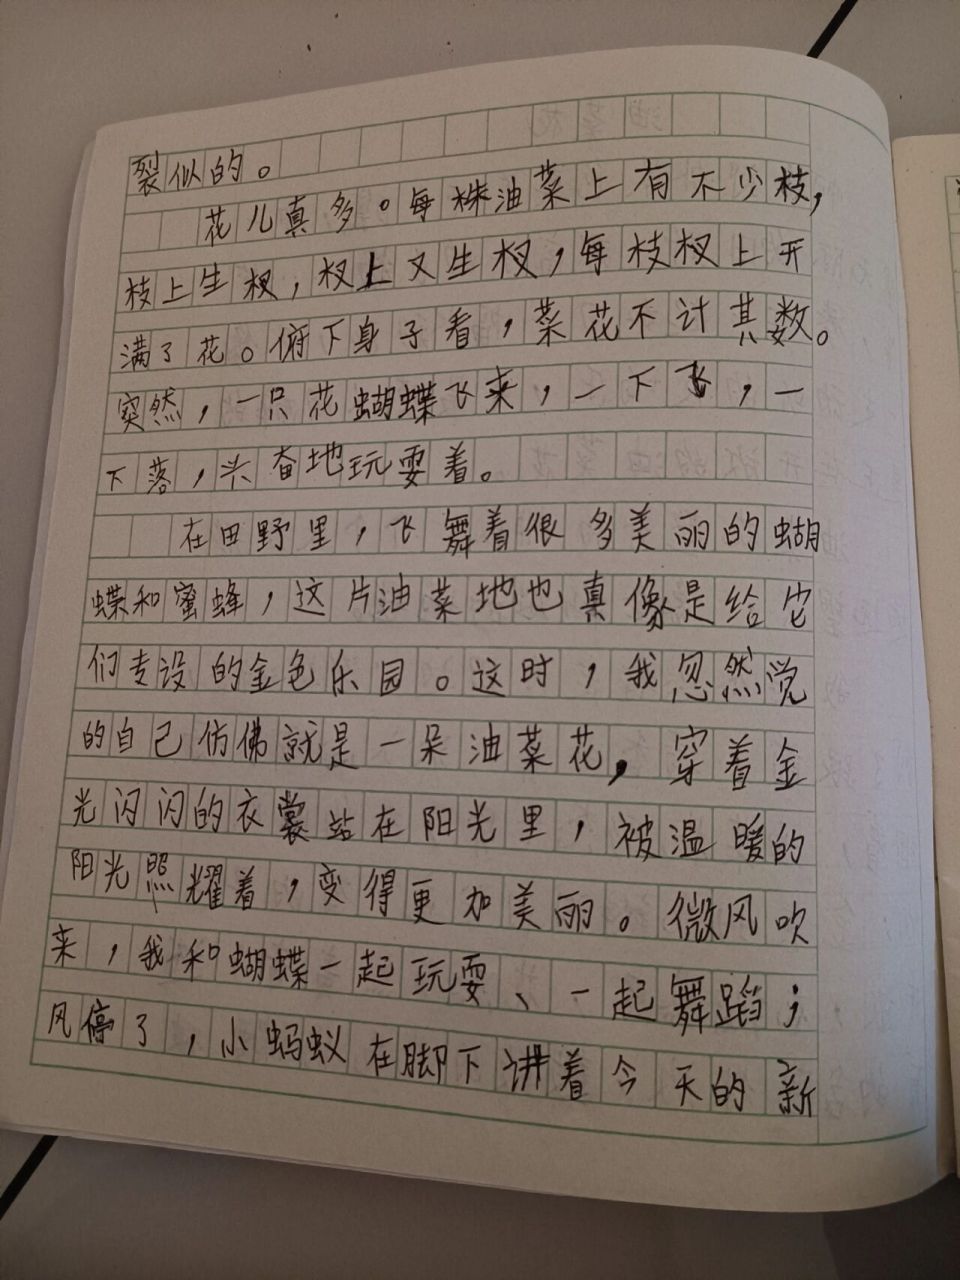 裂似的。
花儿真多。每株油菜上有不少枝，
枝上生杈，杈上又生杈，每枝杈上开
满了花。俯下身子看，菜花不计其数。
突然，一只花蝴蝶飞来，一下飞，一
下落，兴奋地玩耍着。
在田野里，飞舞着很多美丽的蝴
蝶和蜜蜂，这片油菜地也真像是给它
们专设的金色乐园。这时，我忽然觉
的自己仿佛就是一朵油菜花，穿着金
光闪闪的衣裳站在阳光里，被温暖的
阳光照耀着，变得更加美丽。微风吹
来，我和蝴蝶一起玩耍、一起舞蹈；
风停了，小蚂蚁在脚下讲着今天的新